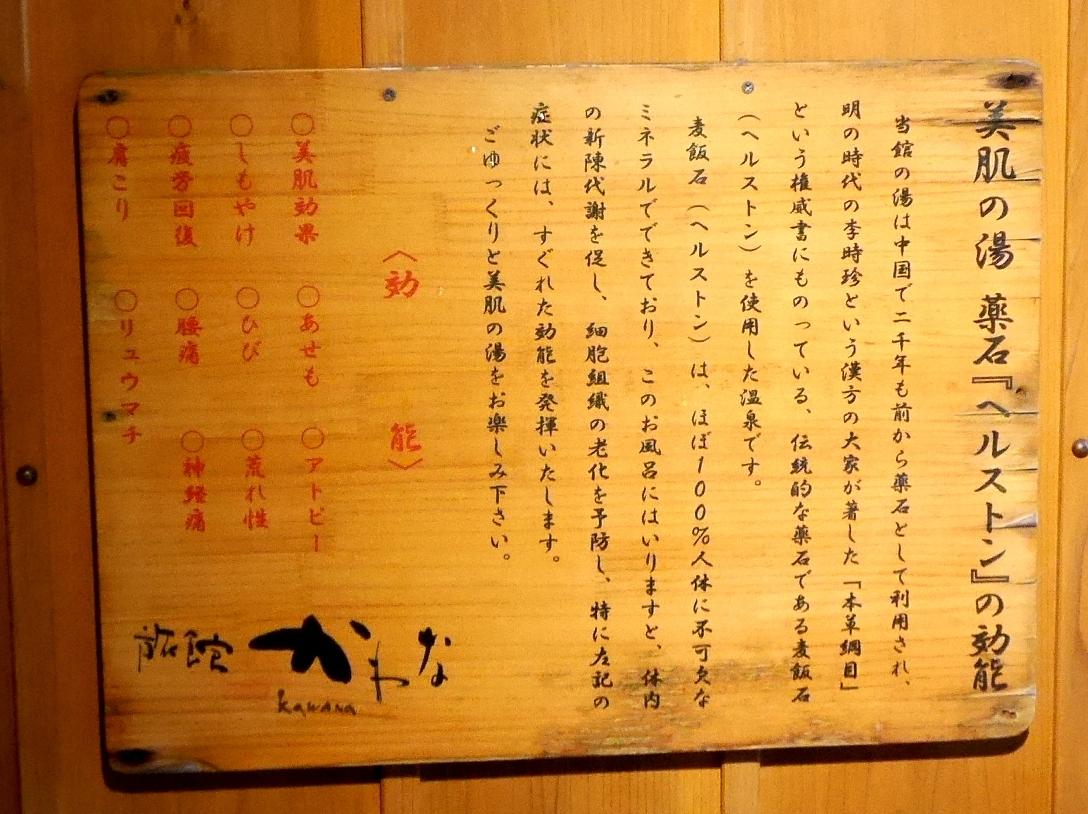 美肌の湯 薬石『ヘルストン』の効能
当館の湯は中国で二千年も前から薬石として利用され、
明の時代の李時珍という漢方の大家が著した「本草綱目」
という権威書にものっている、伝統的な薬石である麦飯石
(ヘルストン)を使用した温泉です。
麦飯石(ヘルストン)は、ほぼ100%人体に不可欠な
ミネラルでできており、このお風呂にはいりますと、体内
の新陳代謝を促し、細胞組織の老化を予防し、特に左記の
症状には、すぐれた効能を発揮いたします。
ごゆっくりと美肌の湯をお楽しみ下さい。
〈効能〉
○美肌効果 ○あせも ○アトピー
○しもやけ ○ひび ○荒れ性
○疲労回復 ○腰痛 ○神経痛
○肩こり ○リュウマチ
旅館 かわな
kawana